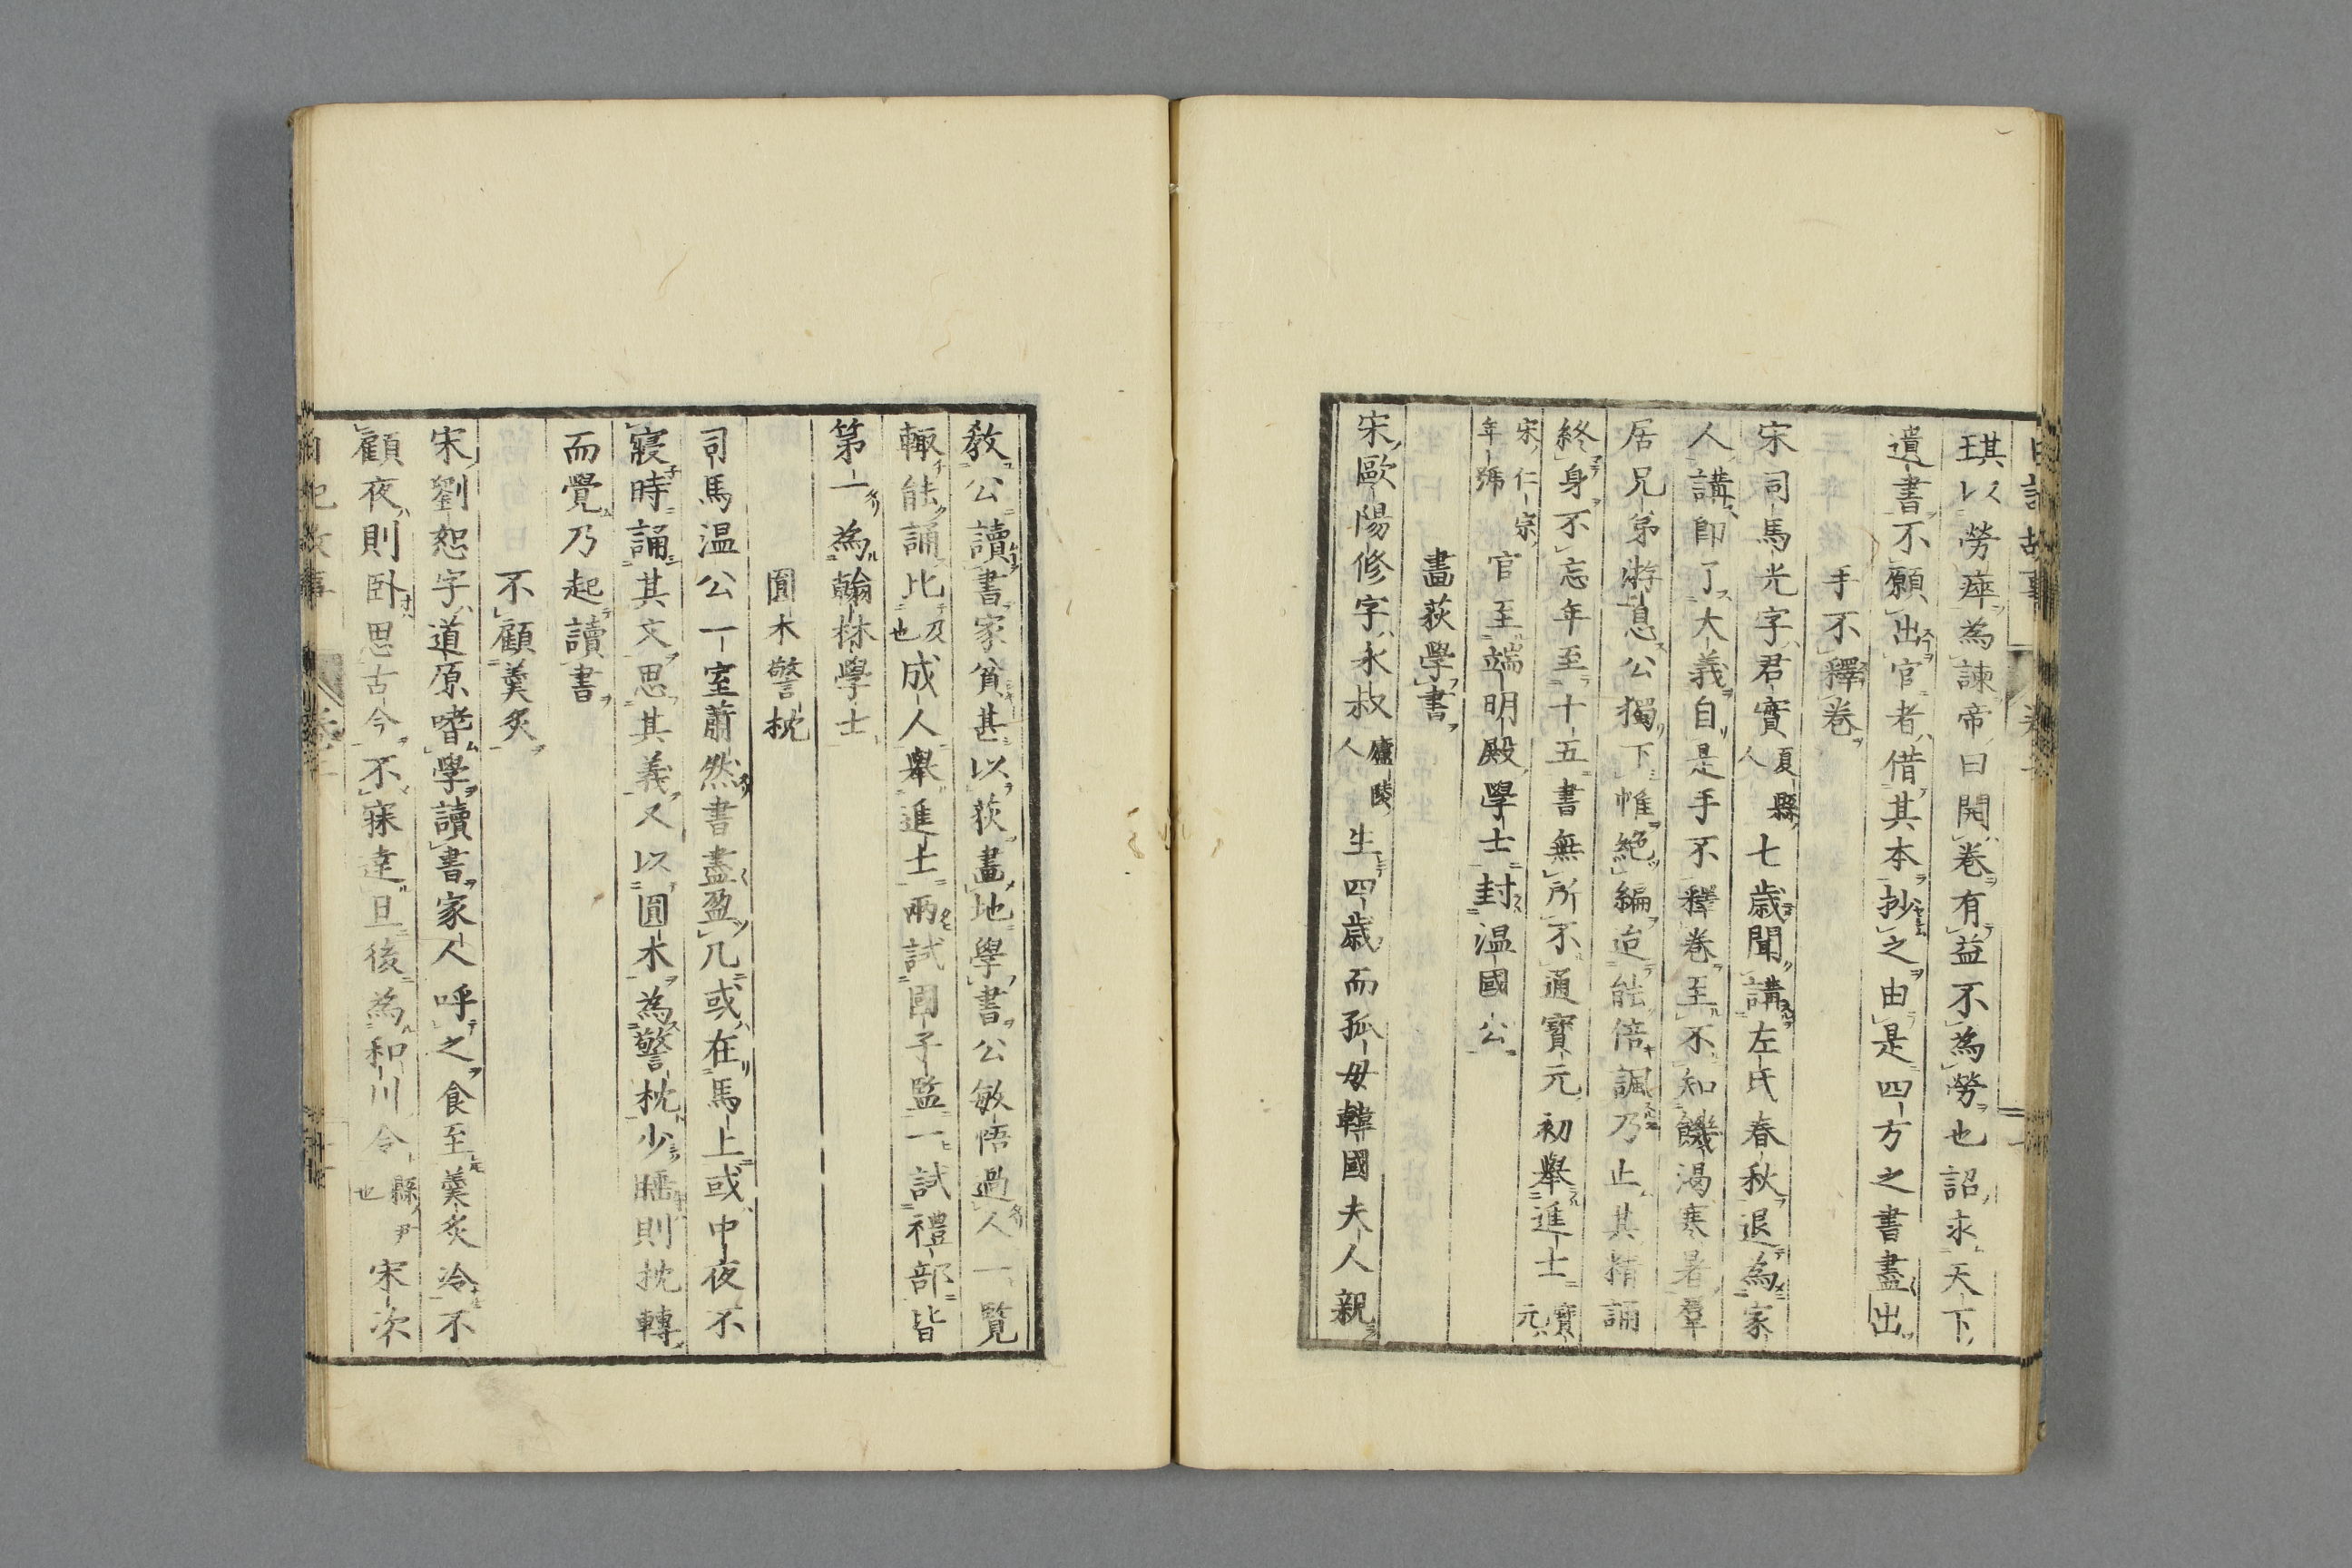 琪以勞瘁為諫帝曰開卷有益不為勞也詔求天下
遺書不願出官者借其本抄之由是四方之書盡出
手不釋卷
宋司馬光字君實夏縣人七歲聞講左氏春秋退為家
人講即了大義自是手不釋卷至不知饑渴寒暑羣
居兄弟游息公獨下帷絕編迨能倍諷乃止其精誦
終身不忘年至十五書無所不通寶元初舉進士寶元
宋仁宗年號官至端明殿學士封温國公
畫荻學書
宋歐陽修字永叔廬陵人生四歲而孤母韓國夫人親
教公讀書家貧甚以荻畫地學書公敏悟過人一覽
輙能誦比及也成人舉進士兩試國子監一試禮部皆
第一為翰林學士
圓木警枕
司馬温公一室蕭然書盡盈几或在馬上或中夜不
寢時誦其文思其義又以圓木為警枕少睡則枕轉
而覺乃起讀書
不顧羹炙
宋劉恕字道原嗜學讀書家人呼之食至羹炙冷不
顧夜則卧思古今不寐達旦後為和川令縣尹也宋次